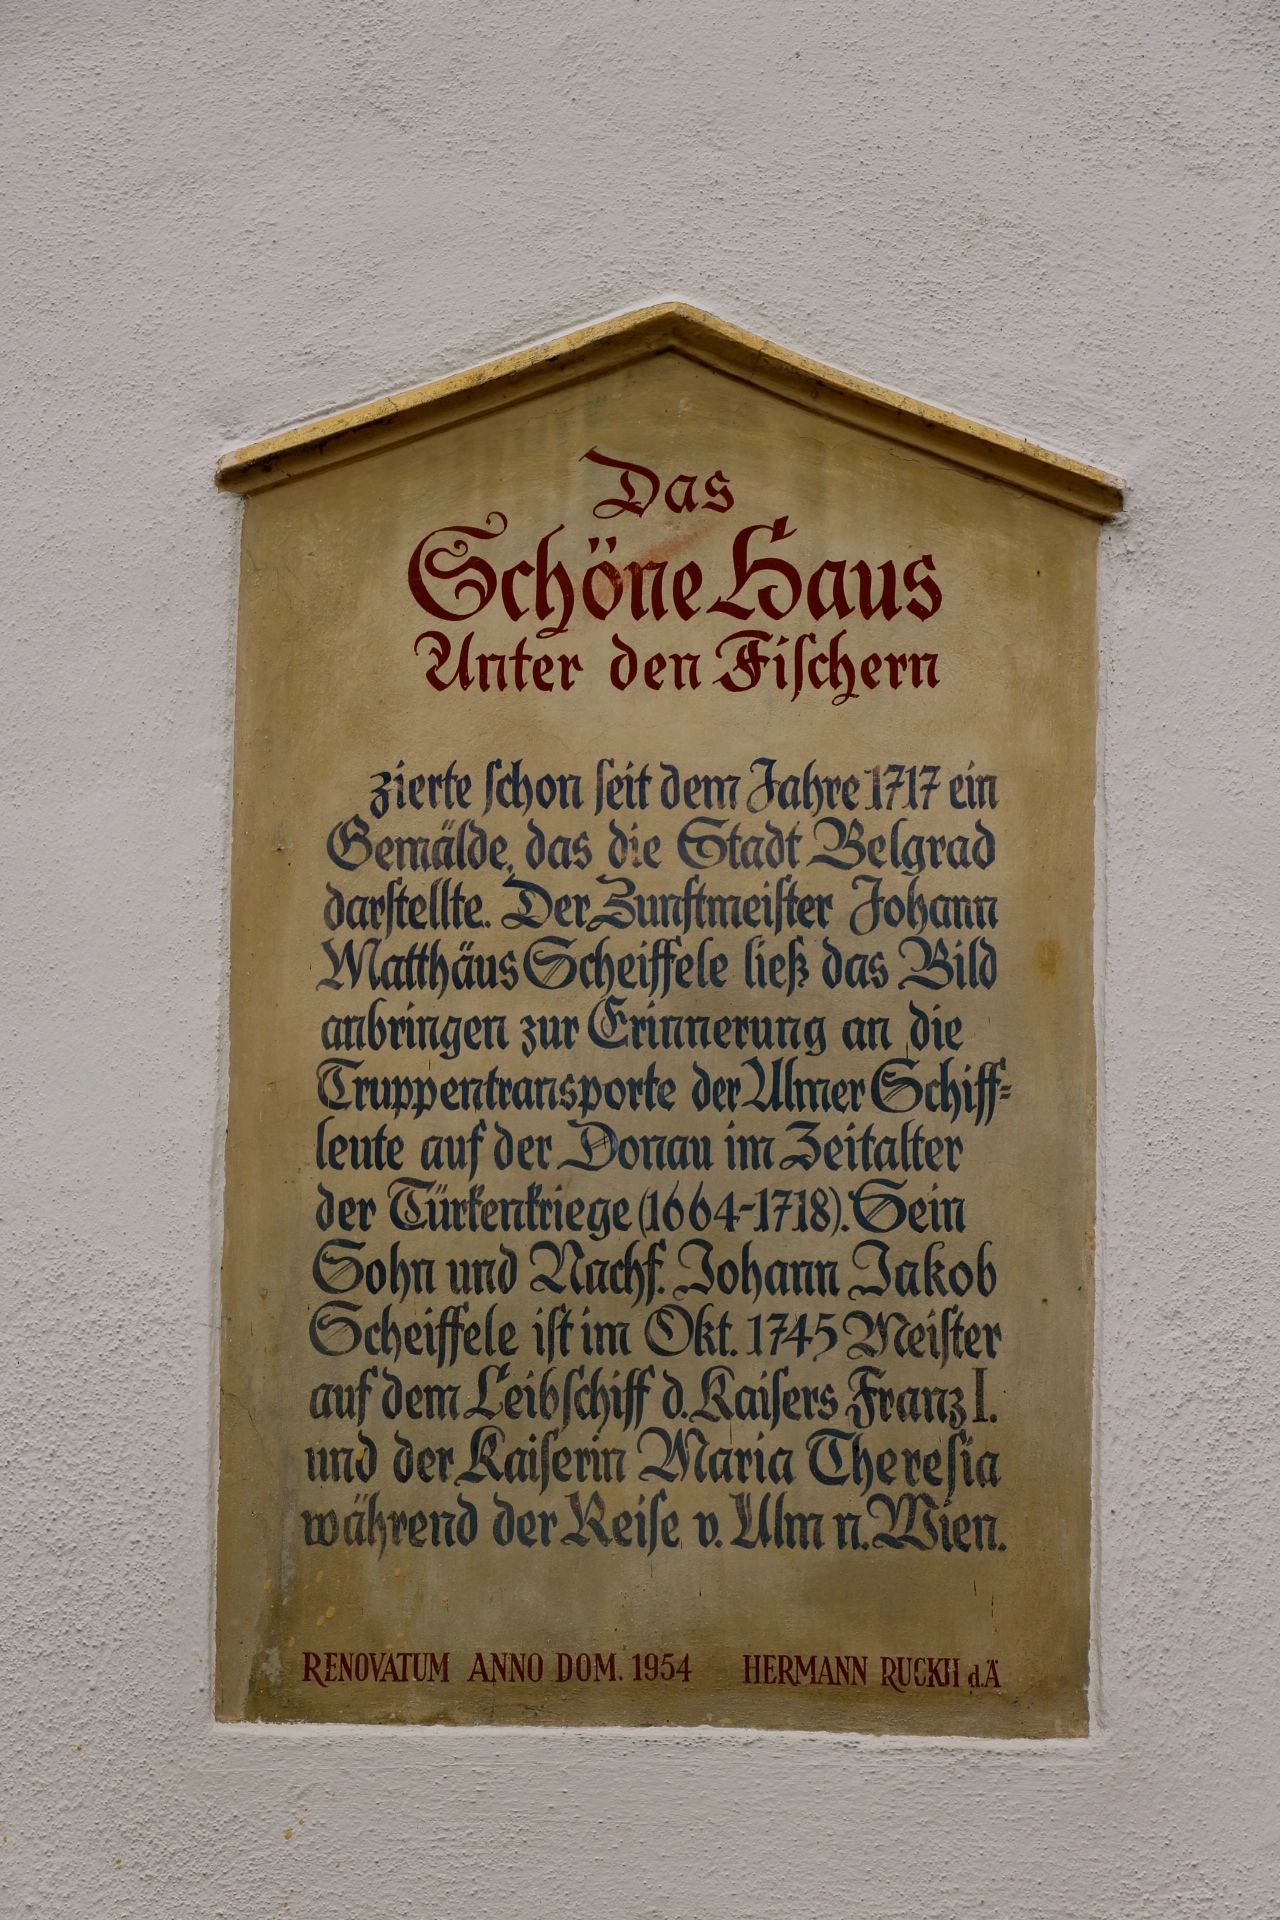 Das
Schöne Haus
Unter den Fischern
zierte schon seit dem Jahre 1717 ein
Gemälde, das die Stadt Belgrad
darstellte. Der Zunftmeister Johann
Matthäus Scheiffele ließ das Bild
anbringen zur Erinnerung an die
Truppentransporte der Ulmer Schiff=
leute auf der Donau im Zeitalter
der Türkenkriege (1664-1718). Sein
Sohn und Nachf. Johann Jakob
Scheiffele ist im Okt. 1745 Meister
auf dem Leibschiff d. Kaisers Franz I.
und der Kaiserin Maria Theresia
während der Reise v. Ulm n. Wien.
RENOVATUM ANNO DOM. 1954 HERMANN RUCKH d.Ä